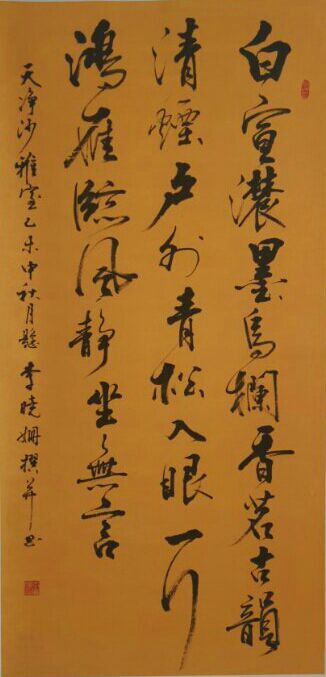 白宣濃墨烏欄香茗古韻
清煙戶外青松入眼一行
鴻雁臨風靜坐無言
天净沙雅室乙未中秋月懸李曉姍撰并書